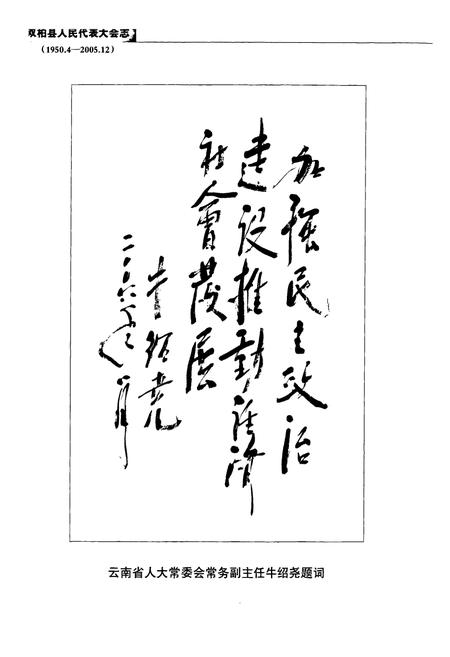 双柏县人民代表大会志
(1950.4—2005.12)
加強民主政治
建设推動经济
社會發展
牛绍尧
二〇〇六年
云南省人大常委会常务副主任牛绍尧题词